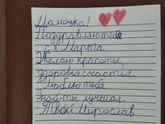 Мамочка!
Поздравляю тебя
с 8 Марта
Желаю красоты,
Здоровья счастья
Люблю тебя
Будь
лучшая.
Твой Мирослав